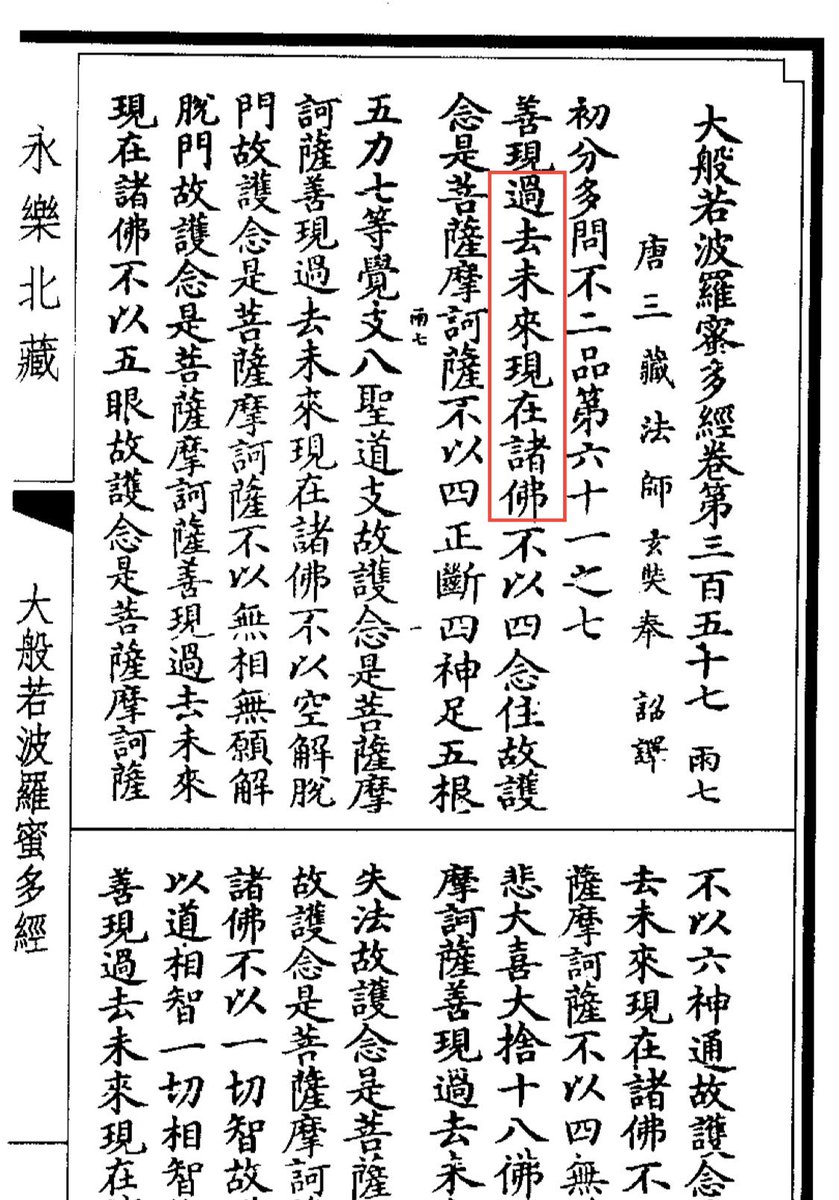 大般若波羅蜜多經卷第三百五十七 雨七
唐三藏法師玄奘奉 詔譯
初分多問不二品第六十一之七
善現過去未來現在諸佛不以四念住故護
念是菩薩摩訶薩不以四正斷四神足五根
雨七 一
五力七等覺支八聖道支故護念是菩薩摩
訶薩善現過去未來現在諸佛不以空解脫
門故護念是菩薩摩訶薩不以無相無願解
脫門故護念是菩薩摩訶薩善現過去未來
現在諸佛不以五眼故護念是菩薩摩訶薩
不以六神通故護念
去未來現在諸佛不
薩摩訶薩不以四無
悲大喜大捨十八佛
摩訶薩善現過去未
失法故護念是菩薩
故護念是菩薩摩訶
諸佛不以一切智故
以道相智一切相智
善現過去未來現在
永樂北藏
大般若波羅蜜多經